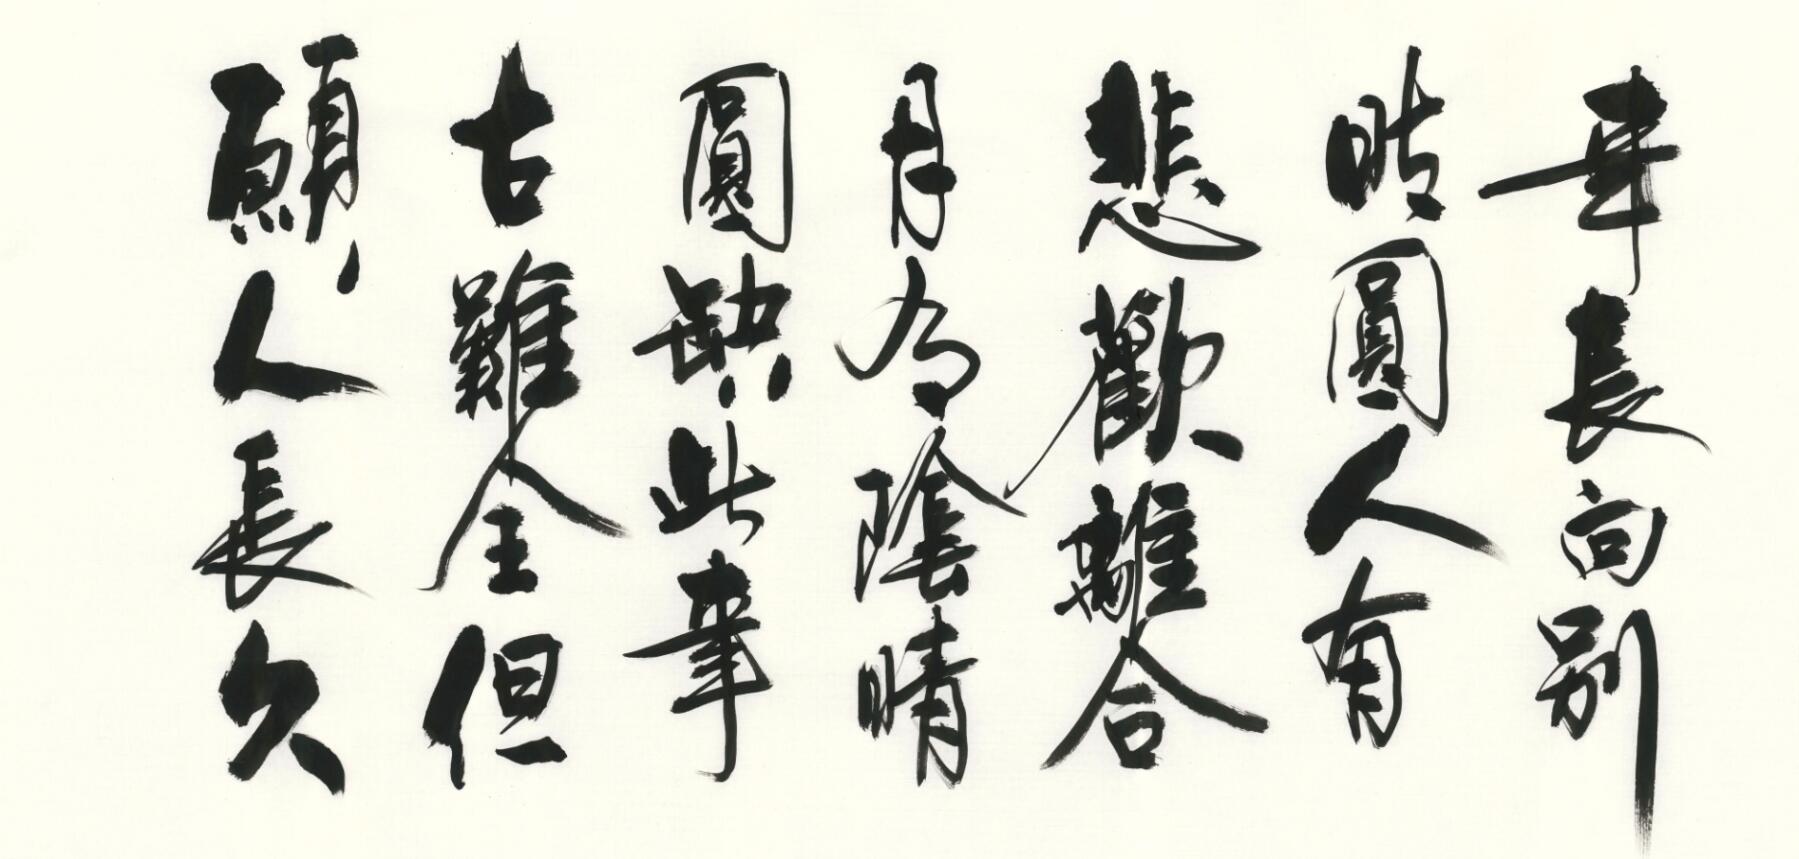 事長向別
時圓人有
悲歡離合
月有陰晴
圓缺此事
古難全但
願人長久